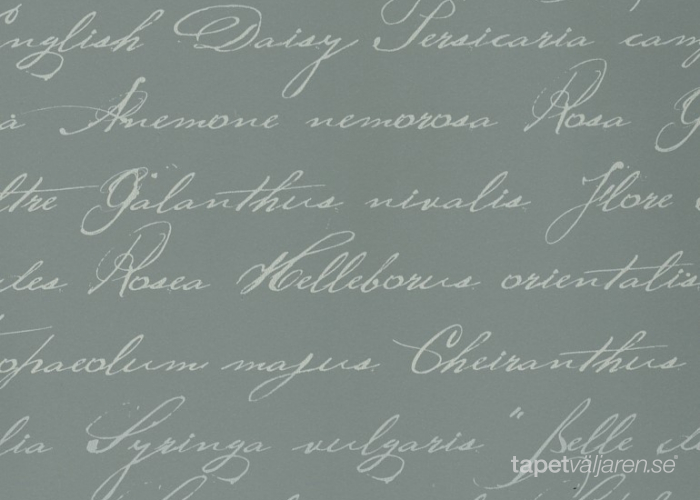 English Daisy Persicaria cam
a Anemone nemorosa Rosa G
ltre Galanthus nivalis Flore
des Rosea Helleborus orientalis
opaeolum majus Cheiranthus
lia Syringa vulgaris "Belle de
tapetväljaren.se